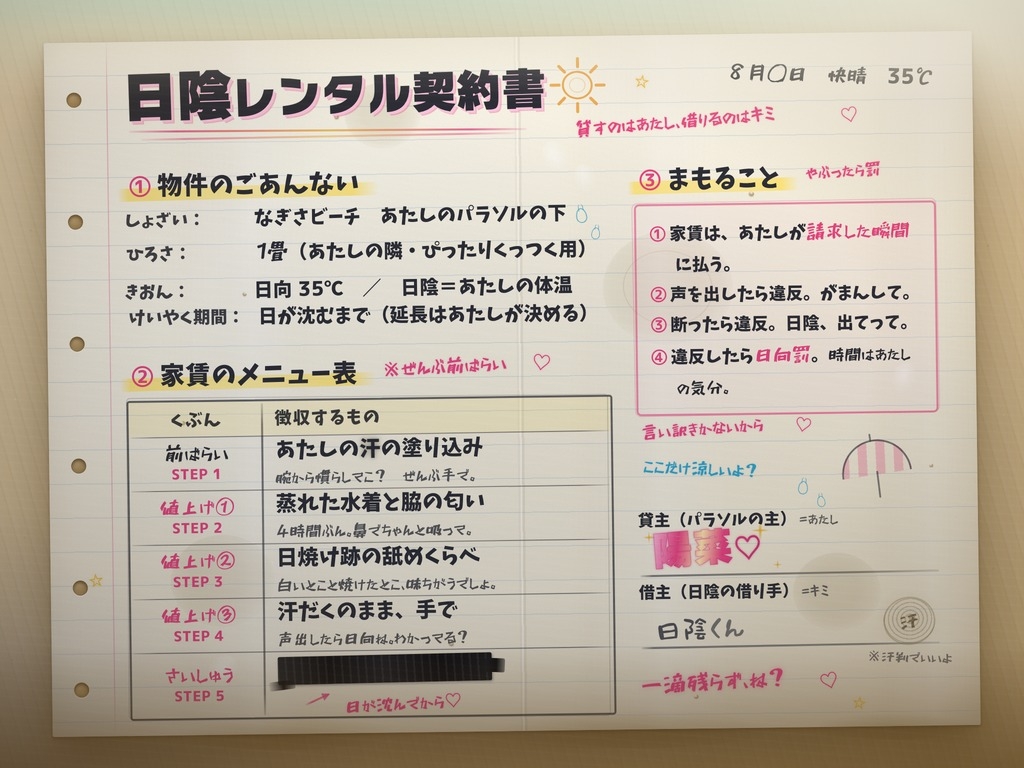 日陰レンタル契約書
8月〇日 快晴 35℃
貸すのはあたし、借りるのはキミ♡
① 物件のごあんない
しょざい： なぎさビーチ あたしのパラソルの下
ひろさ： 1畳（あたしの隣・ぴったりくっつく用）
きおん： 日向 35℃ ／ 日陰＝あたしの体温
けいやく期間： 日が沈むまで（延長はあたしが決める）
② 家賃のメニュー表 ※ぜんぶ前ばらい♡
くぶん 徴収するもの
前ばらい STEP 1
あたしの汗の塗り込み
腕から慣らしてこ？ ぜんぶ手で。
値上げ① STEP 2
蒸れた水着と脇の匂い
4時間ぶん。鼻でちゃんと吸って。
値上げ② STEP 3
日焼け跡の舐めくらべ
白いとこと焼けたとこ、味ちがうでしょ。
値上げ③ STEP 4
汗だくのまま、手で
声出したら日向ね。わかってる？
さいしゅう STEP 5
日が沈んでから♡
③ まもること やぶったら罰
① 家賃は、あたしが請求した瞬間
に払う。
② 声を出したら違反。がまんして。
③ 断ったら違反。日陰、出てって。
④ 違反したら日向罰。時間はあたし
の気分。
言い訳きかないから♡
ここだけ涼しいよ？
貸主（パラソルの主）＝あたし
陽菜♡
借主（日陰の借り手）＝キミ
日陰くん
汗
※汗判でいいよ
一滴残らず、ね？♡